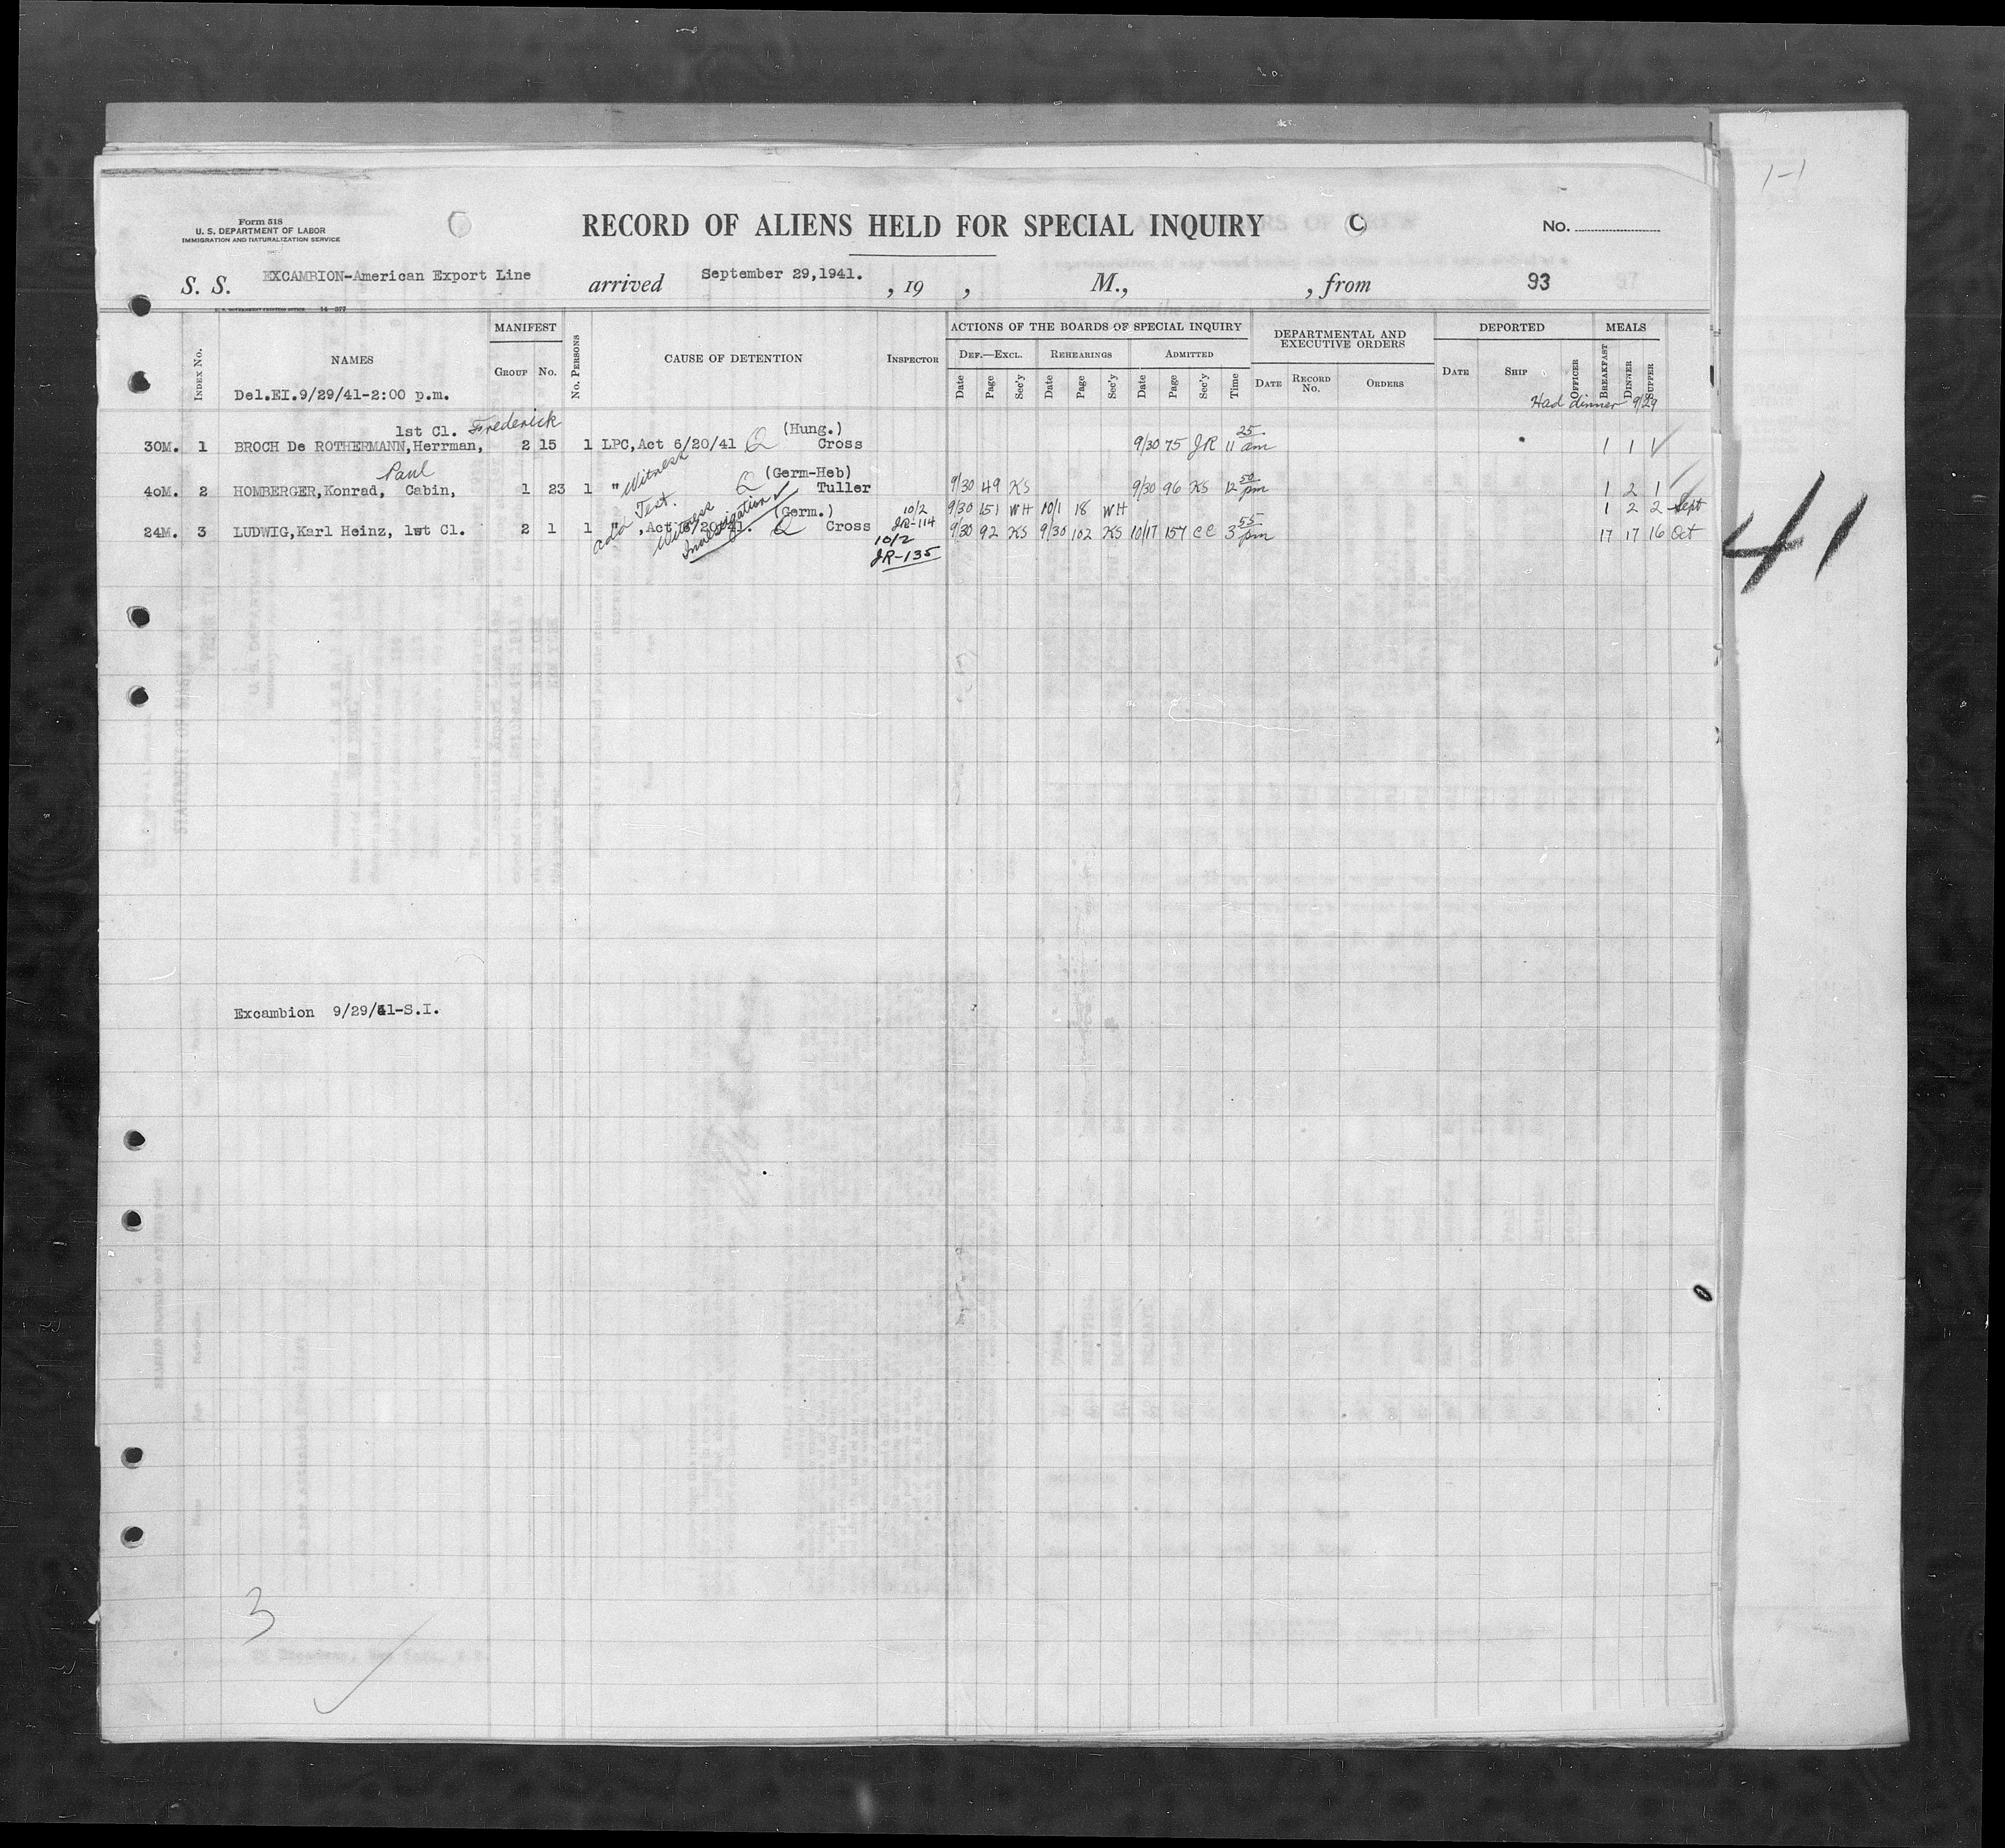 1-1
Form 518
U. S. DEPARTMENT OF LABOR
IMMIGRATION AND NATURALIZATION SERVICE
RECORD OF ALIENS HELD FOR SPECIAL INQUIRY
C
No.
S. S. EXCAMBION-American Export Line arrived September 29,1941. , 19 , M., , from 93
U. S. GOVERNMENT PRINTING OFFICE 14-577
INDEX No. NAMES MANIFEST GROUP No. No. PERSONS CAUSE OF DETENTION INSPECTOR
ACTIONS OF THE BOARDS OF SPECIAL INQUIRY DEPARTMENTAL AND EXECUTIVE ORDERS DEPORTED MEALS
DEF.—EXCL. REHEARINGS ADMITTED
Date Page Sec'y Date Page Sec'y Date Page Sec'y Time DATE RECORD No. ORDERS DATE SHIP OFFICER BREAKFAST DINNER SUPPER
Del.EI.9/29/41-2:00 p.m.
Had dinner 9/29
1st Cl. Frederick (Hung.) 25
30M. 1 BROCH De ROTHERMANN,Herrman, 2 15 1 LPC,Act 6/20/41 Q Cross 9/30 75 JR 11 am 1 1 ✓
Paul Witness Q (Germ-Heb) 50
40M. 2 HOMBERGER,Konrad, Cabin, 1 23 1 " Tuller 9/30 49 KS 9/30 96 KS 12 pm 1 2 1
add Test. Witness Investigation ✓ (Germ.) 10/2 JR-114 9/30 151 WH 10/1 18 WH 1 2 2 Sept
24M. 3 LUDWIG,Karl Heinz, 1st Cl. 2 1 1 " ,Act 6/20/41. Q Cross 9/30 92 KS 9/30 102 KS 10/17 157 CC 3 55 pm 17 17 16 Oct
10/2
JR-135
41
Excambion 9/29/41-S.I.
3